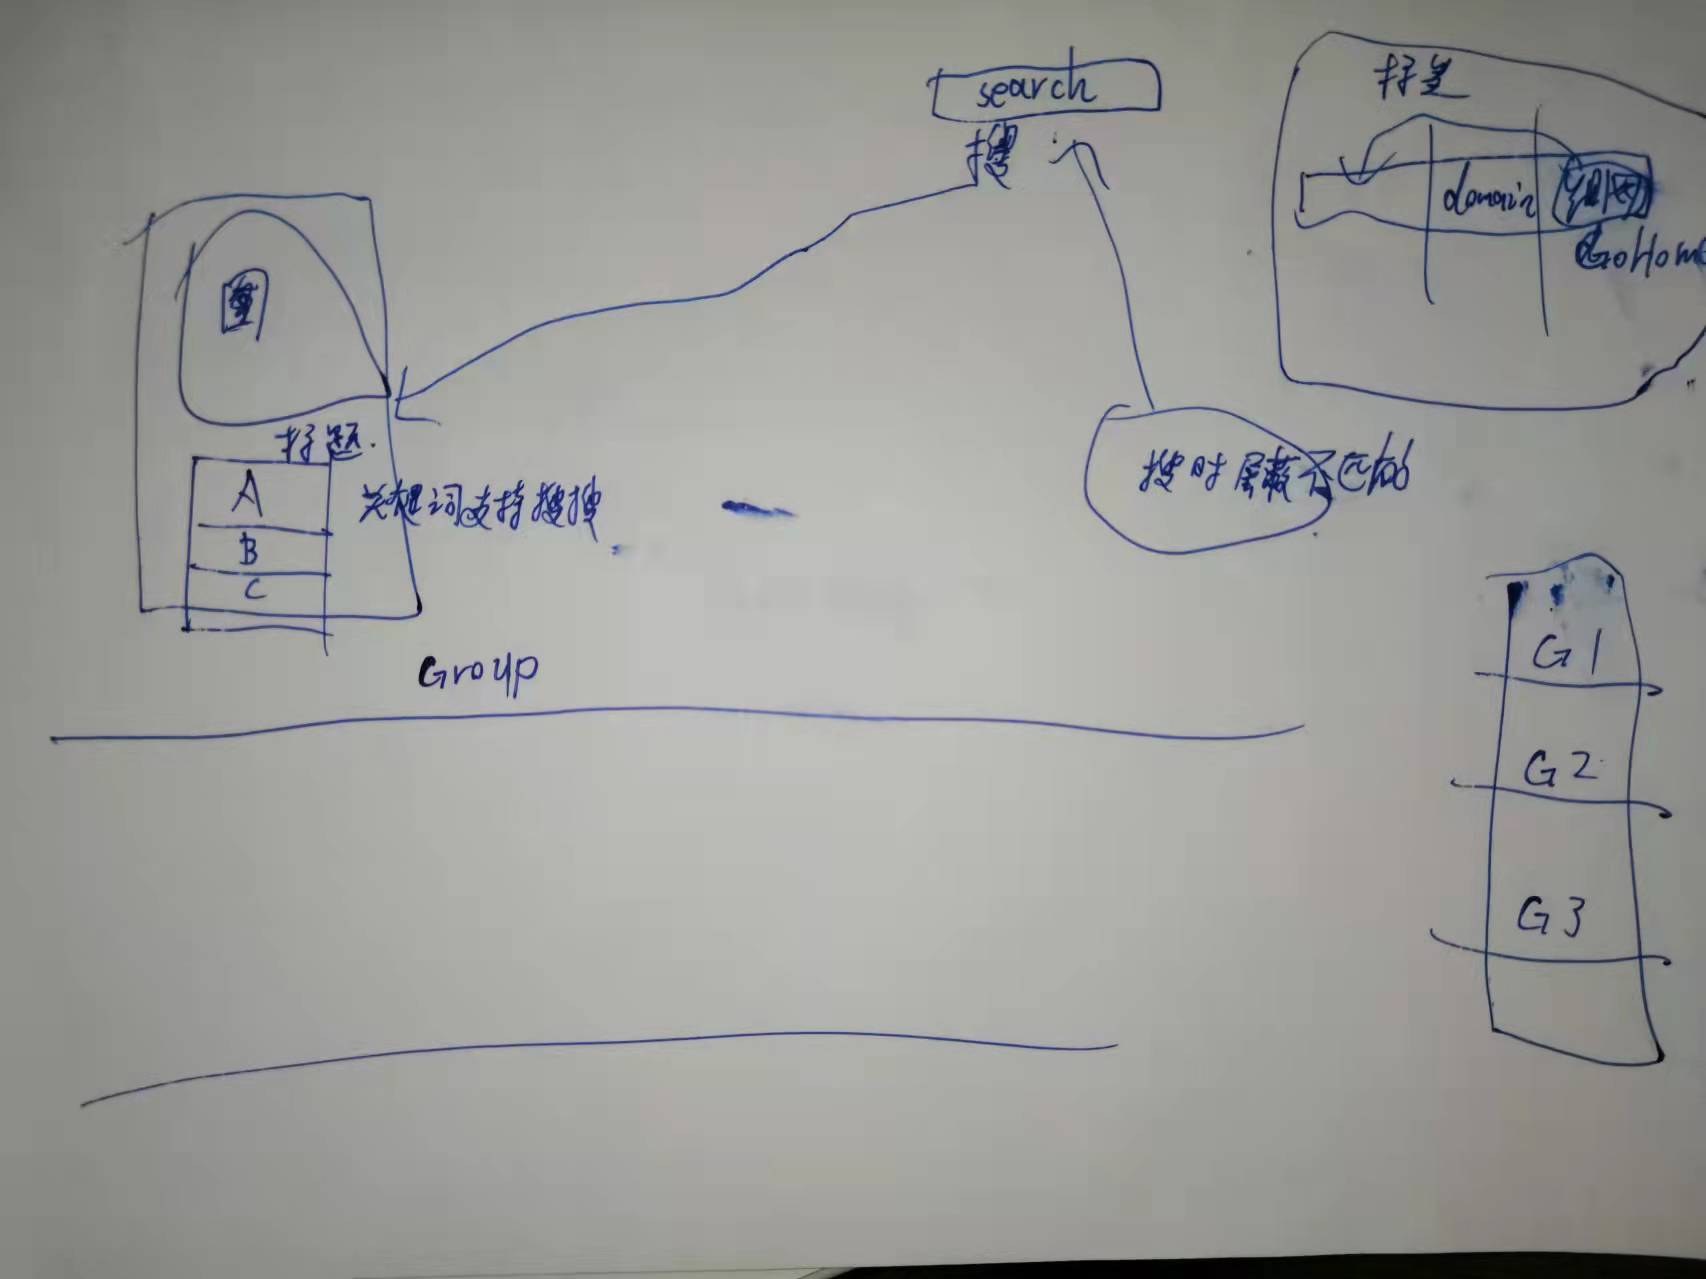 search
搜
domain
GoHome
标题
A
关键词支持搜搜
B
C
搜时屏蔽不匹配的
Group
G1
G2
G3